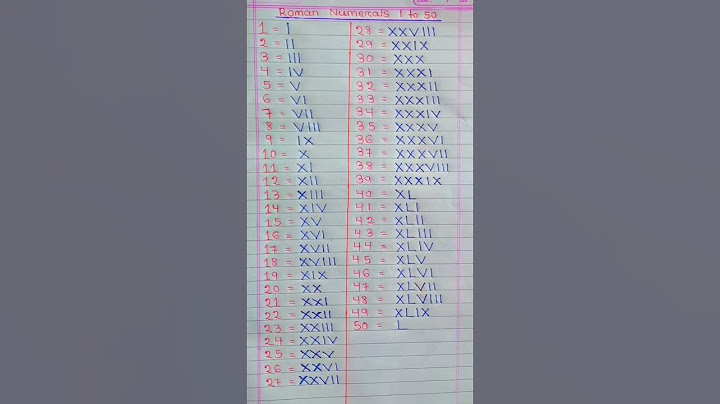 Roman Numerals 1 to 50
1 = I
2 = II
3 = III
4 = IV
5 = V
6 = VI
7 = VII
8 = VIII
9 = IX
10 = X
11 = XI
12 = XII
13 = XIII
14 = XIV
15 = XV
16 = XVI
17 = XVII
18 = XVIII
19 = XIX
20 = XX
21 = XXI
22 = XXII
23 = XXIII
24 = XXIV
25 = XXV
26 = XXVI
27 = XXVII
28 = XXVIII
29 = XXIX
30 = XXX
31 = XXXI
32 = XXXII
33 = XXXIII
34 = XXXIV
35 = XXXV
36 = XXXVI
37 = XXXVII
38 = XXXVIII
39 = XXXIX
40 = XL
41 = XLI
42 = XLII
43 = XLIII
44 = XLIV
45 = XLV
46 = XLVI
47 = XLVII
48 = XLVIII
49 = XLIX
50 = L